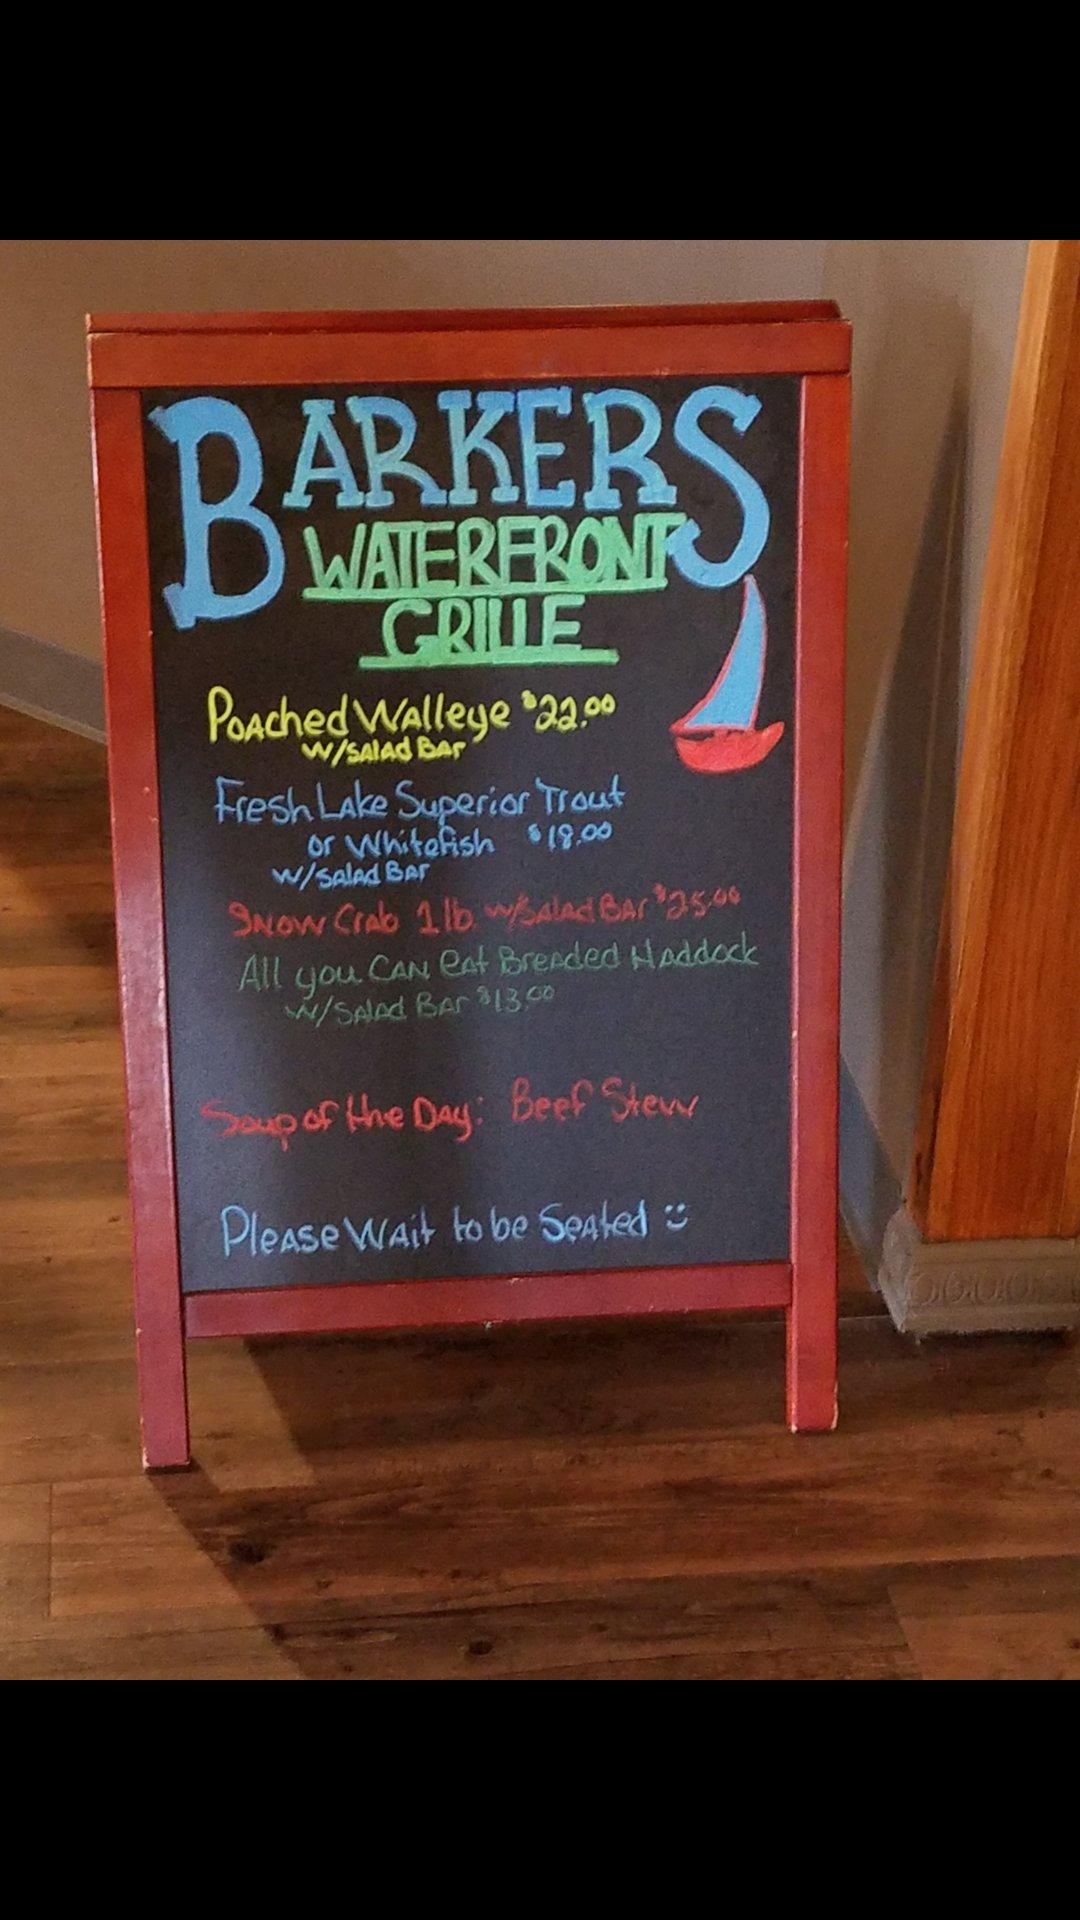 BARKERS
WATERFRONT
GRILLE
Poached Walleye $22.00
w/Salad Bar
Fresh Lake Superior Trout
or Whitefish $18.00
w/Salad Bar
Snow Crab 1 lb. w/Salad Bar $25.00
All you can eat Breaded Haddock
w/Salad Bar $13.00
Soup of the Day: Beef Stew
Please Wait to be Seated :)